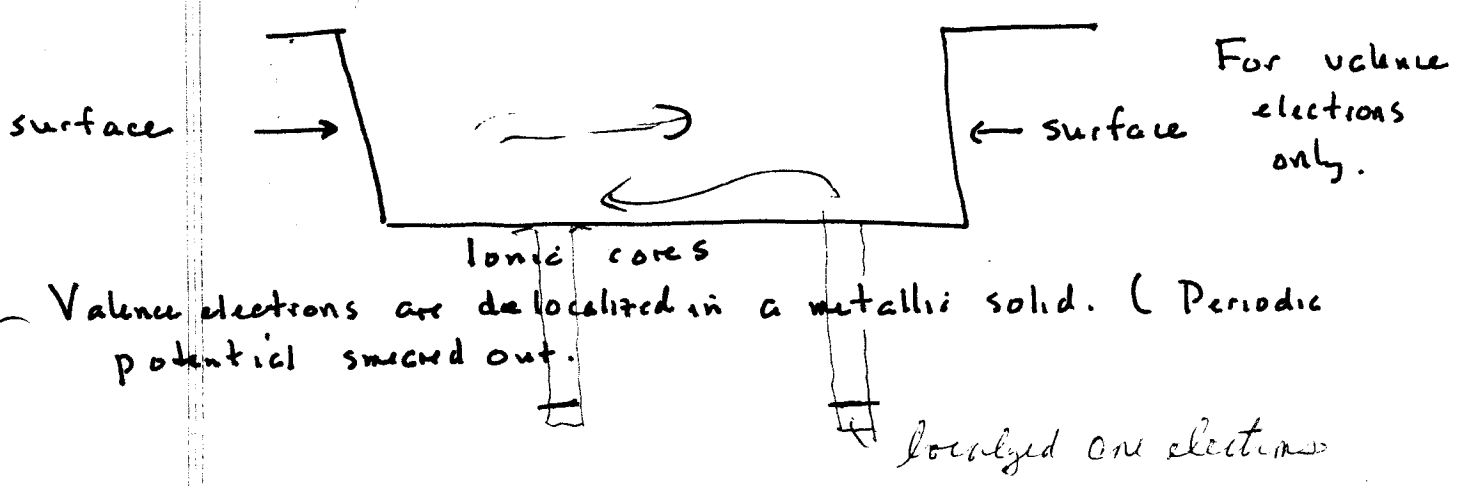 For valence
surface → ← surface electrons
only.
Ionic cores
Valence electrons are delocalized in a metallic solid. ( Periodic
potential smeared out.
localized